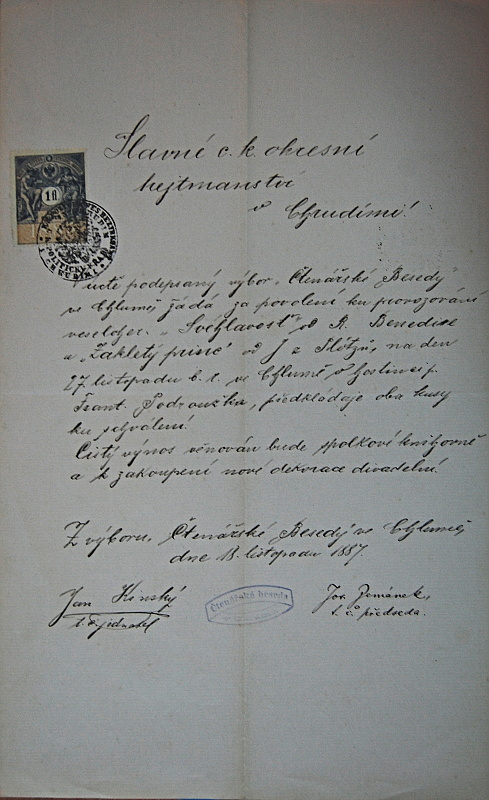 Slavné c. k. okresní
hejtmanství
v Chrudimi!
10
V úctě podepsaný výbor "Čtenářské Besedy"
ve Chlumě žádá za povolení ku provozování
veseloher: "Svéhlavost" od R. Benedixe
a "Zakletý princ" od J. z Plötzů, na den
27. listopadu b. r. ve Chlumě v hostinci p.
Frant. Podroužka, předkládaje oba kusy
ku schválení.
Čistý výnos věnován bude spolkové knihovně
a k zakoupení nové dekorace divadelní.
Z výboru Čtenářské Besedy ve Chlumě,
dne listopadu 1887.
Jan Kinský
t. č. jednatel
Čtenářská beseda
Jos. Zemánek,
t. č. předseda.